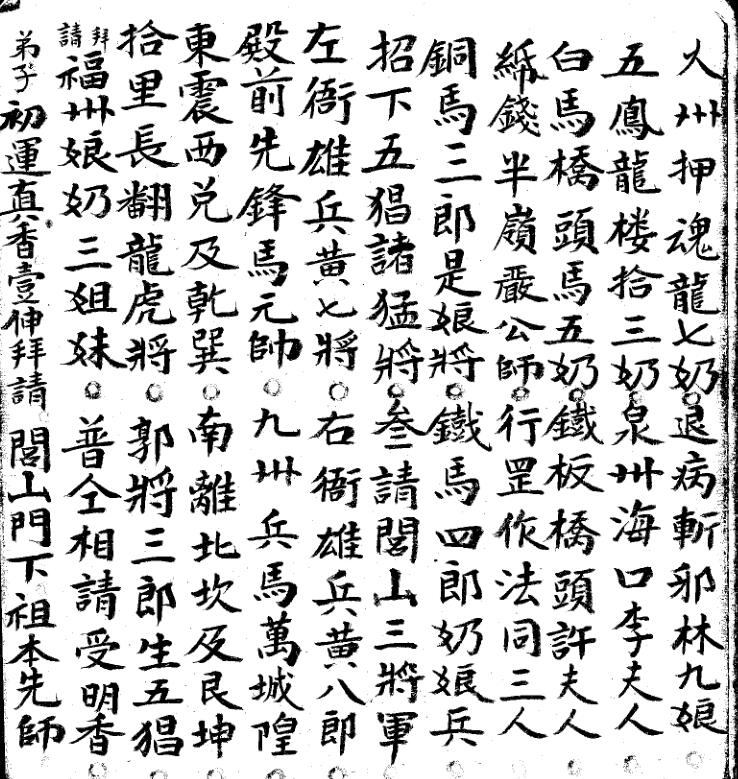 火州押魂龍七奶 退病斬邪林九娘
五鳳龍楼拾三奶 泉州海口李夫人
白馬橋頭馬五奶 鐵板橋頭許夫人
紙錢半嶺嚴公師 行罡作法同三人
銅馬三郎是娘將 鐵馬四郎奶娘兵
招下五猖諸猛將 叁請閭山三將軍
左衙雄兵黄七將 右衙雄兵黄八郎
殿前先鋒馬元帥 九州兵馬萬城隍
東震西兑及乾巽 南離北坎及艮坤
拾里長翻龍虎將 郭將三郎生五猖
拜請福州娘奶三姐妹 普仝相請受明香
弟子初運真香壹伸拜請 閭山門下祖本先師